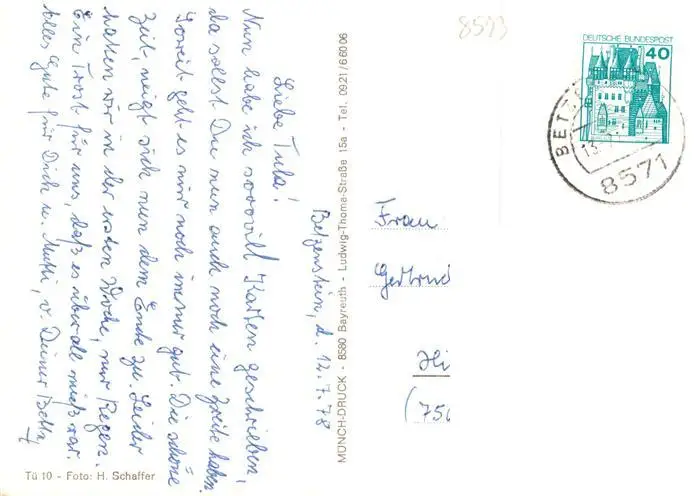 8593
DEUTSCHE BUNDESPOST
40
8571
Betzenstein, d. 12.7.78
Liebe Tula!
Nun habe ich sooovill Karten geschrieben,
da sollst Du nun auch noch eine zweite haben.
Soweit geht es mir noch immer gut. Die schöne
Zeit, neigt sich nun dem Ende zu. Leider
hatten wir in der ersten Woche, nur Regen.
Ein Trost für uns, daß es überall mieß war.
Alles Gute für Dich u. Mutti, v. Deiner Betta,
MÜNCH-DRUCK - 8580 Bayreuth - Ludwig-Thoma-Straße 15a - Tel. 0921/66006
Frau
Gertrud
Tü 10 - Foto: H. Schaffer